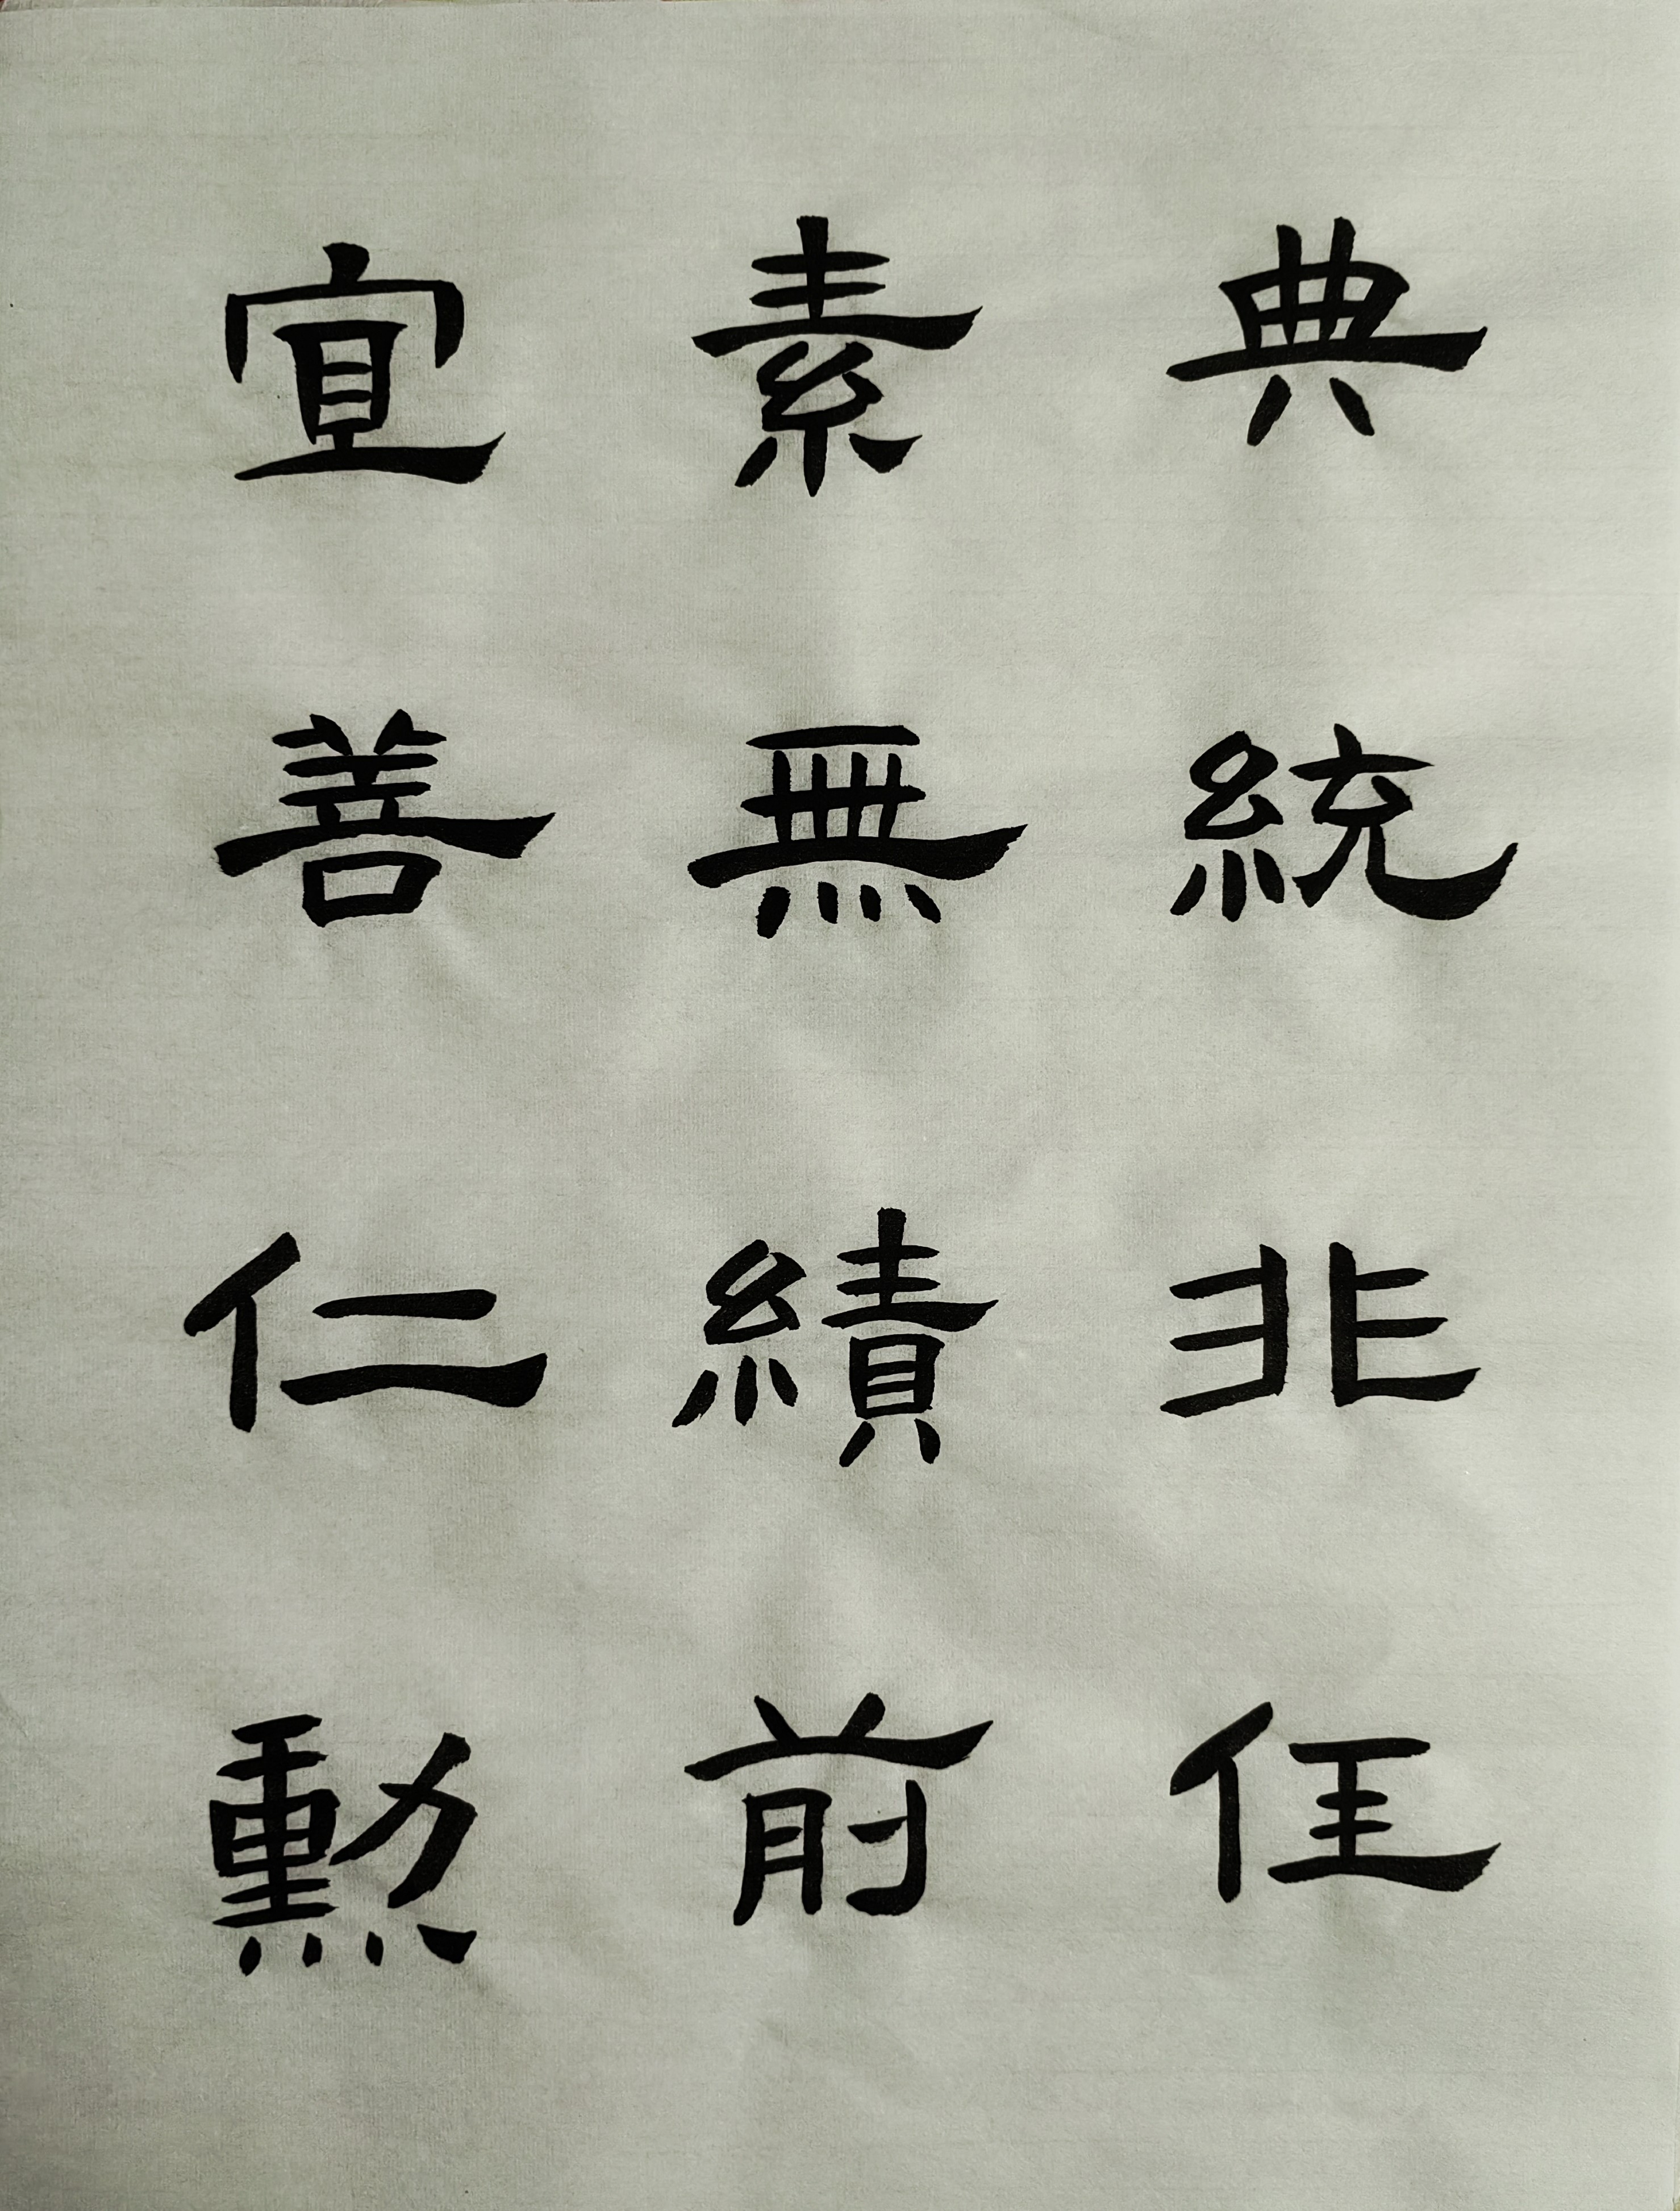 典統非任
素無績前
宜善仁勳